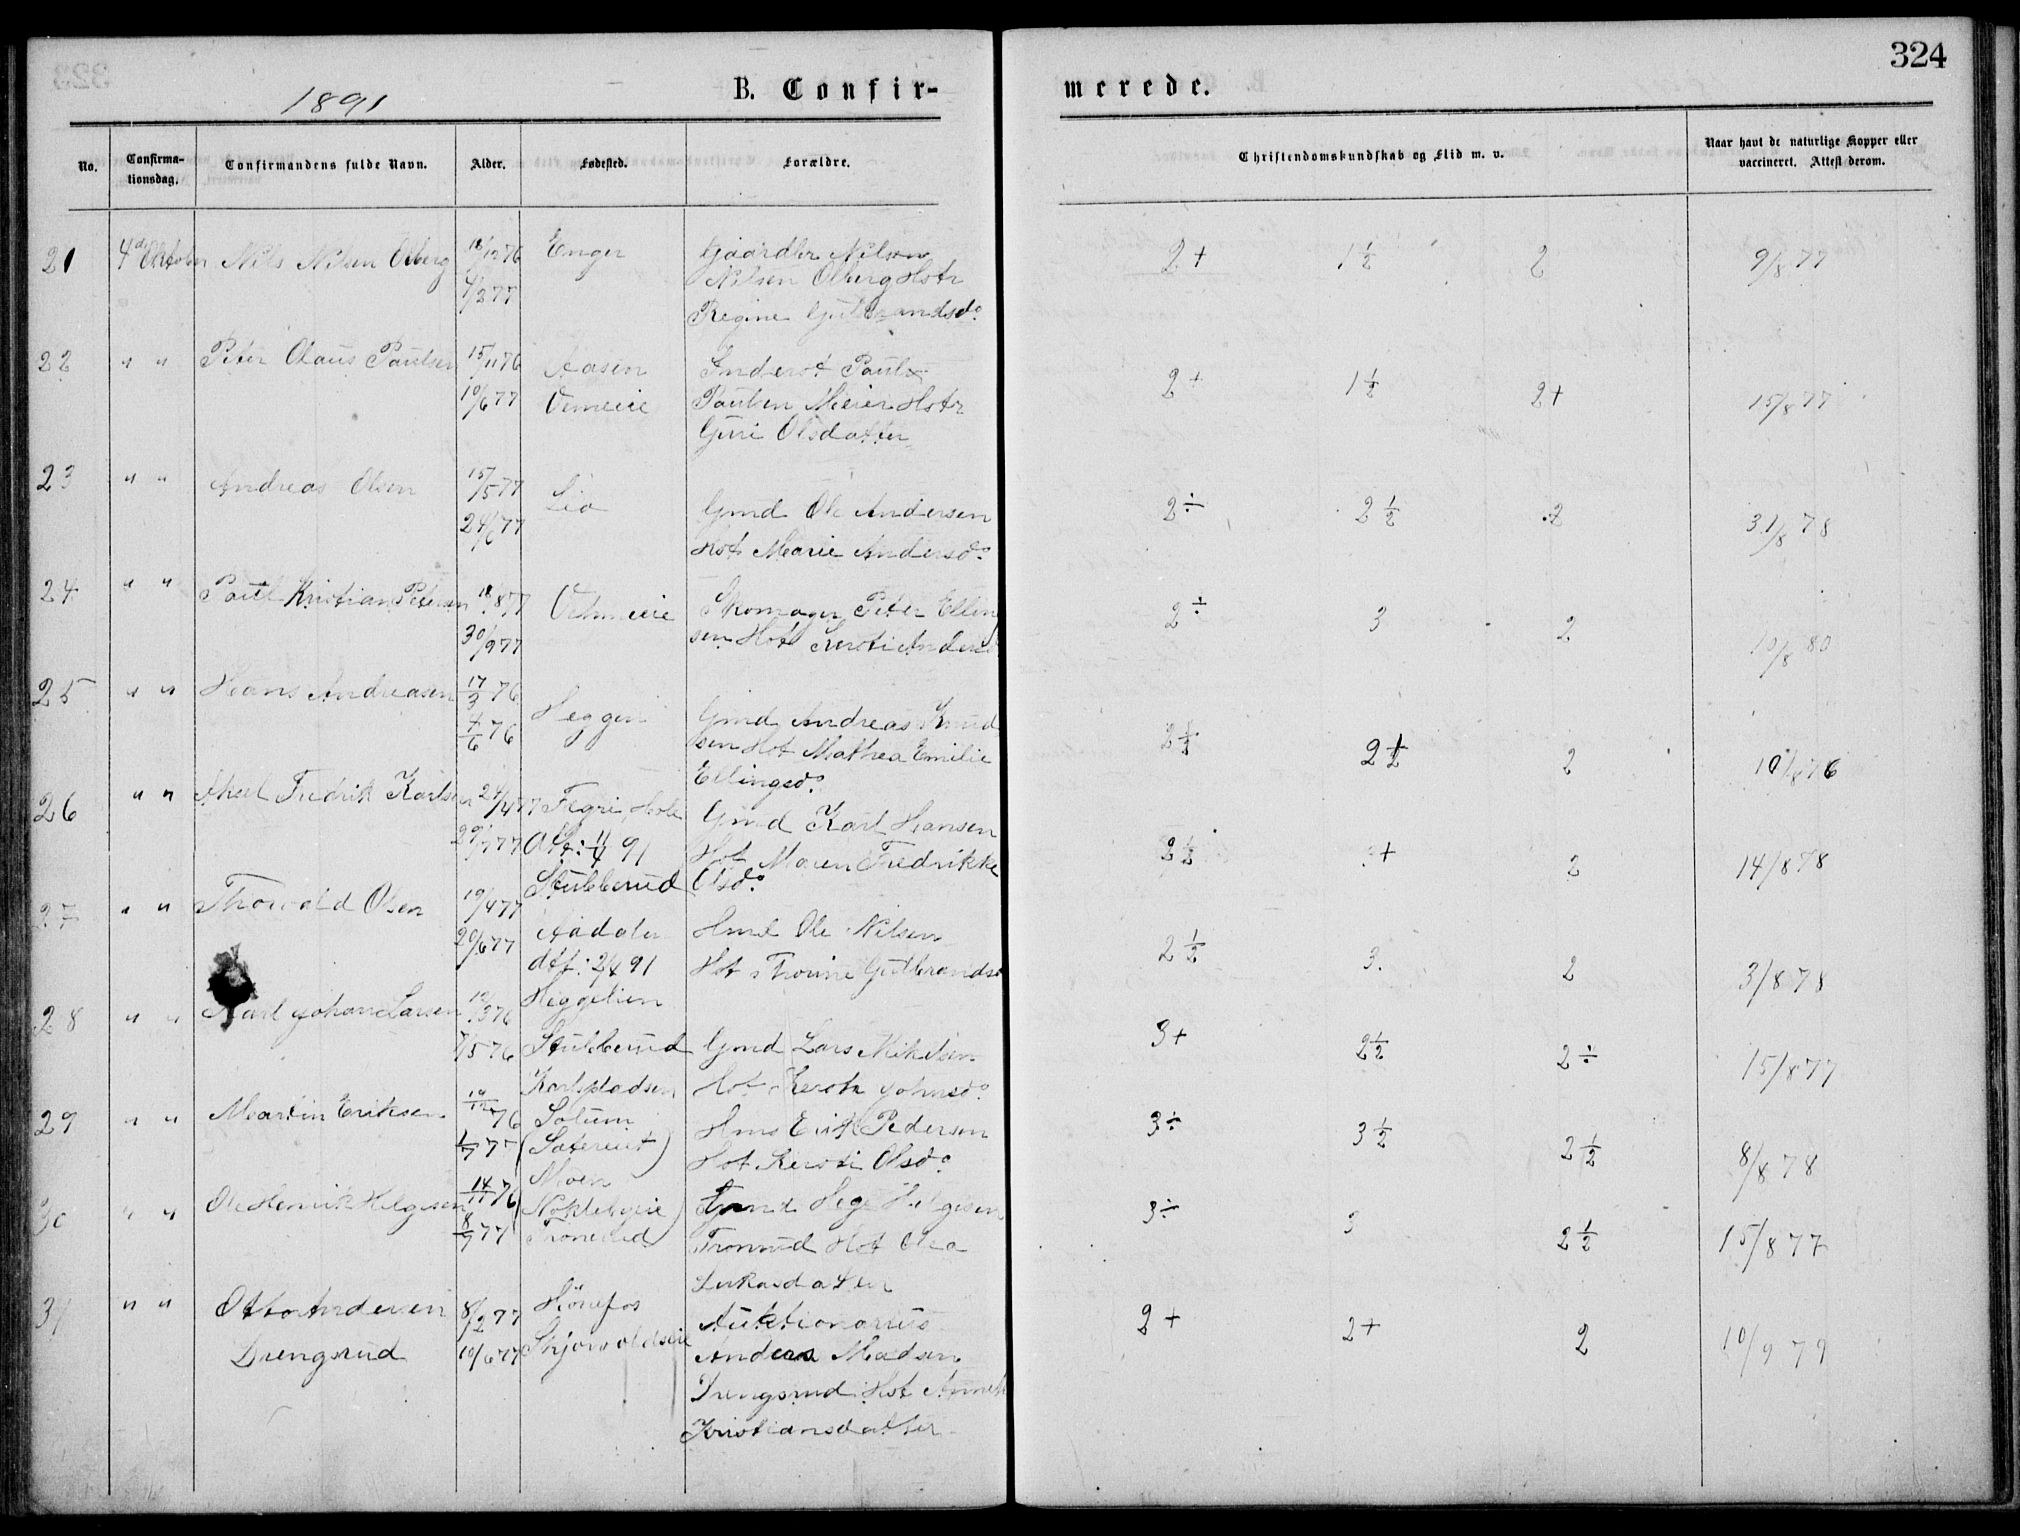 324
1891
B. Confir-
merede.
No.
Confirma-
tionsdag.
Confirmandens fulde Navn.
Alder.
Fødested.
Forældre.
Christendomskundskab og Flid m. v.
Naar havt de naturlige Kopper eller
vaccineret. Attest derom.
21 4d Oktober Nils Nilsen Olberg 18/12 76 Enger Gaardbr Nilsen 2+ 1½ 2 9/8 77
4/2 77 Nilsen Olberg Hstr
Regine Gulbrandsd.
22 " " Peter Olaus Paulsen 15/11 76 Aasen Inderst Paul 2+ 1½ 2+ 15/8 77
10/6 77 Paulsen Meier Hstr
Guri Olsdatter
23 " " Andreas Olsen 15/5 77 Lio Gmd Ole Andersen 2÷ 2½ 2 31/8 78
24/6 77 Hst Marie Andersd.
24 " " Paul Kristian Petersen 18/8 77 Skomager Peter Elling 2÷ 3 2 10/8 80
30/9 77 sen Hst Kersti Andersd
25 " " Hans Andreasen 17/3 76 Heggen Gmd Andreas Knud 2½ 2½ 2 10/8 76
4/6 76 sen Hst Mathea Emilie
Ellingsd.
26 " " Axel Fredrik Karlsen 24/4 77 Fegri, Hole Gmd Karl Hansen 2½ 2 14/8 78
29/7 77 91 Hst Maren Fredrikke
Stubberud Olsd.
27 " " Thorvald Olsen 19/4 77 Aadalen Hmd Ole Nilsen 2½ 3. 2 3/8 78
20/6 77 dtf: 2/4 91 Hst Gulbrandsd
28 " " Karl Johan Larsen 3 76 Heggelien 3+ 2½ 2÷ 15/8 77
7/5 76 Stubberud Gmd Lars Mikelsen
Karlspladsen Hst Johnsd.
29 " " Martin Eriksen 19/12 76 Solum Hms Erik Pedersen 3÷ 3½ 2½ 8/8 78
77 Hst Kersti Olsd.
30 " " Ole Henrik Helgesen 14/11 76 Moen Gmd Helgesen 3÷ 3 2½ 15/8 77
8/7 77 Tronrud Hst Olea
Lukasdatter
31 " " Otto Andersen 8/2 77 Hönefos Auktionarius 2+ 2+ 2 10/9 79
Drengsrud 10/6 77 Anders Madsen
Drengsrud Hst
Kristiansdatter